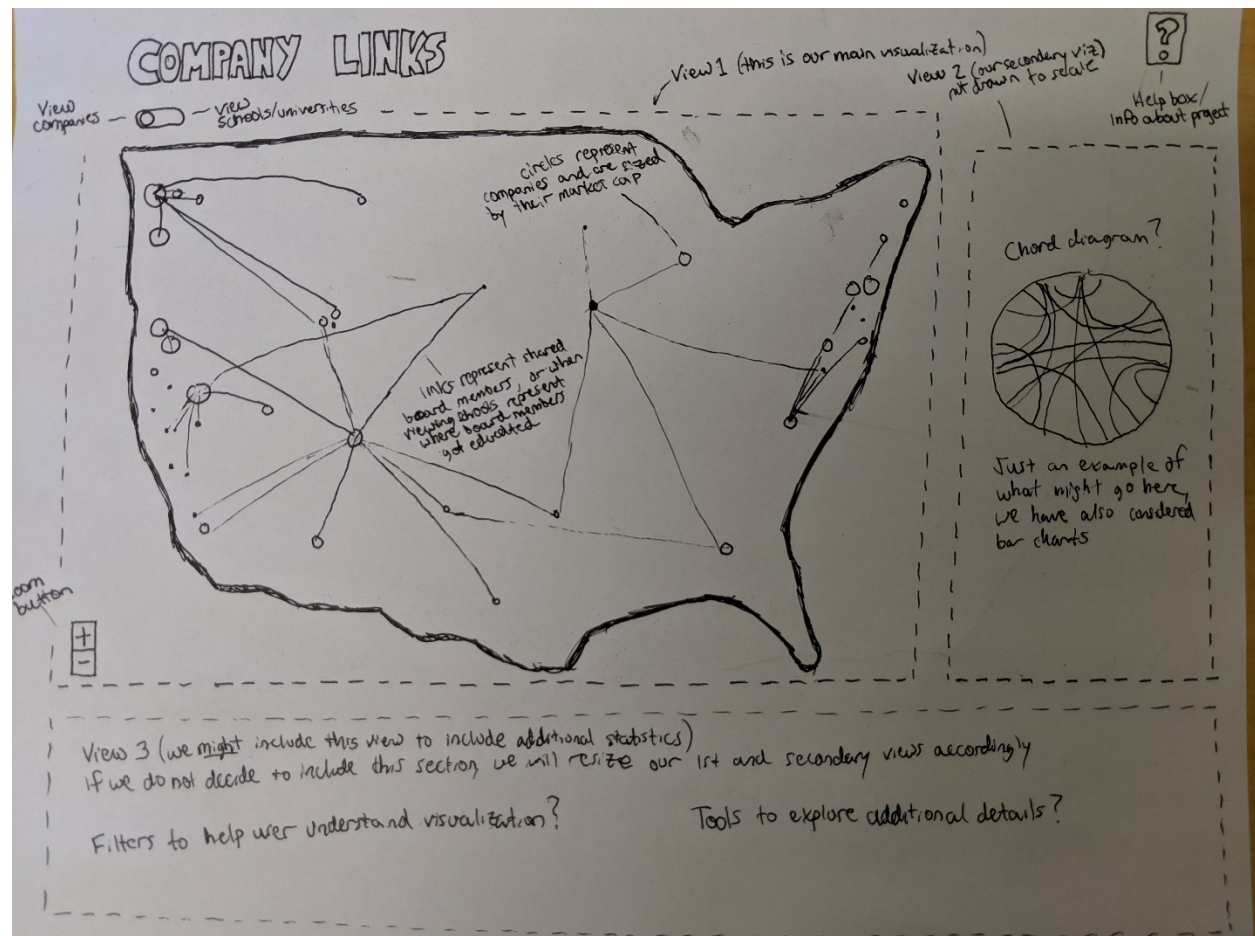 COMPANY LINKS
View 1 (this is our main visualization)
View 2 (our secondary viz)
not drawn to scale
?
Help box/
Info about project
View
companies
view
schools/universities
circles represent
companies and are sized
by their market cap
links represent shared
board members, or when
viewing schools represent
where board members
got educated
Chord diagram?
Just an example of
what might go here,
we have also considered
bar charts
oom
button
+
-
View 3 (we might include this view to include additional statistics)
If we do not decide to include this section, we will resize our 1st and secondary views accordingly
Filters to help user understand visualization?
Tools to explore additional details?